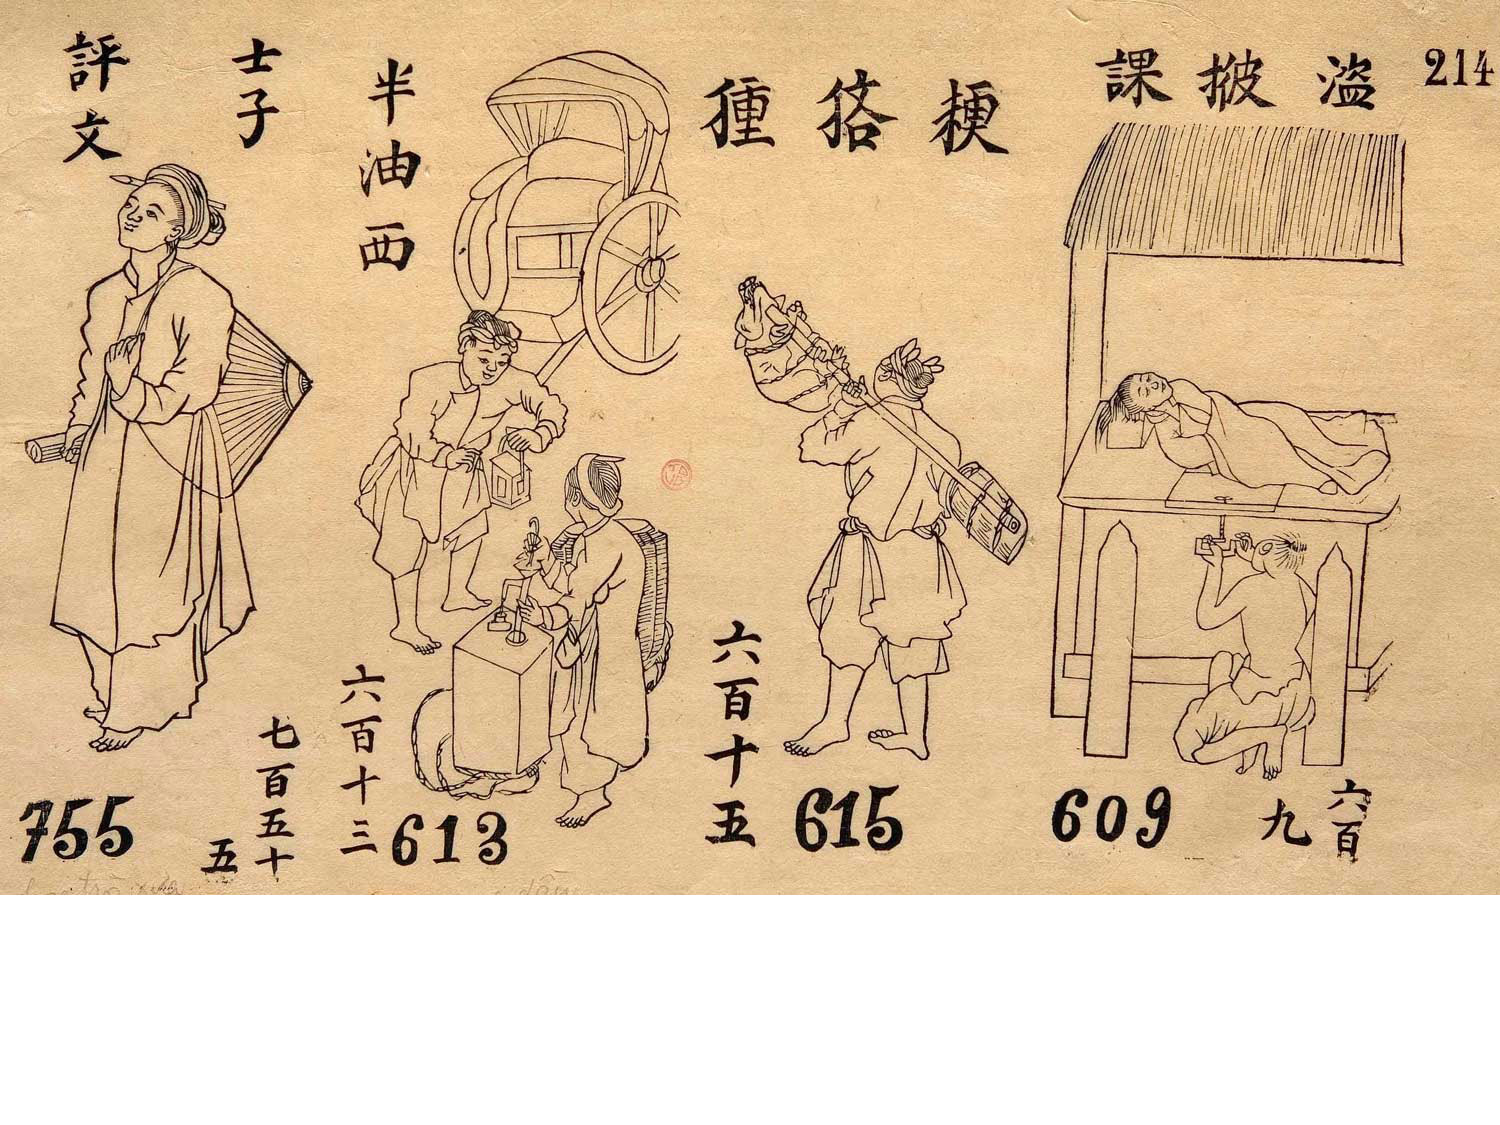 214
盗披課
六百
九
609
梗
六百十五
615
半油西
六百十三
613
士子
評文
七百五十
五
755